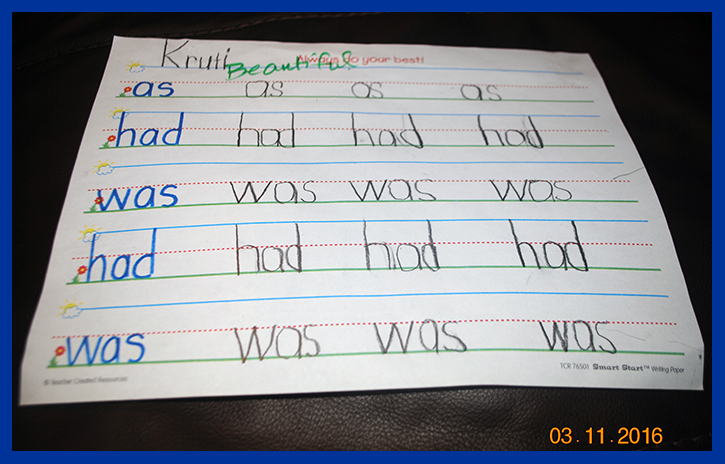 Kruti Beautiful Always do your best!
as as as as
had had had had
was was was was
had had had had
was was was was
© Teacher Created Resources TCR 76501 Smart Start™ Writing Paper
03.11.2016